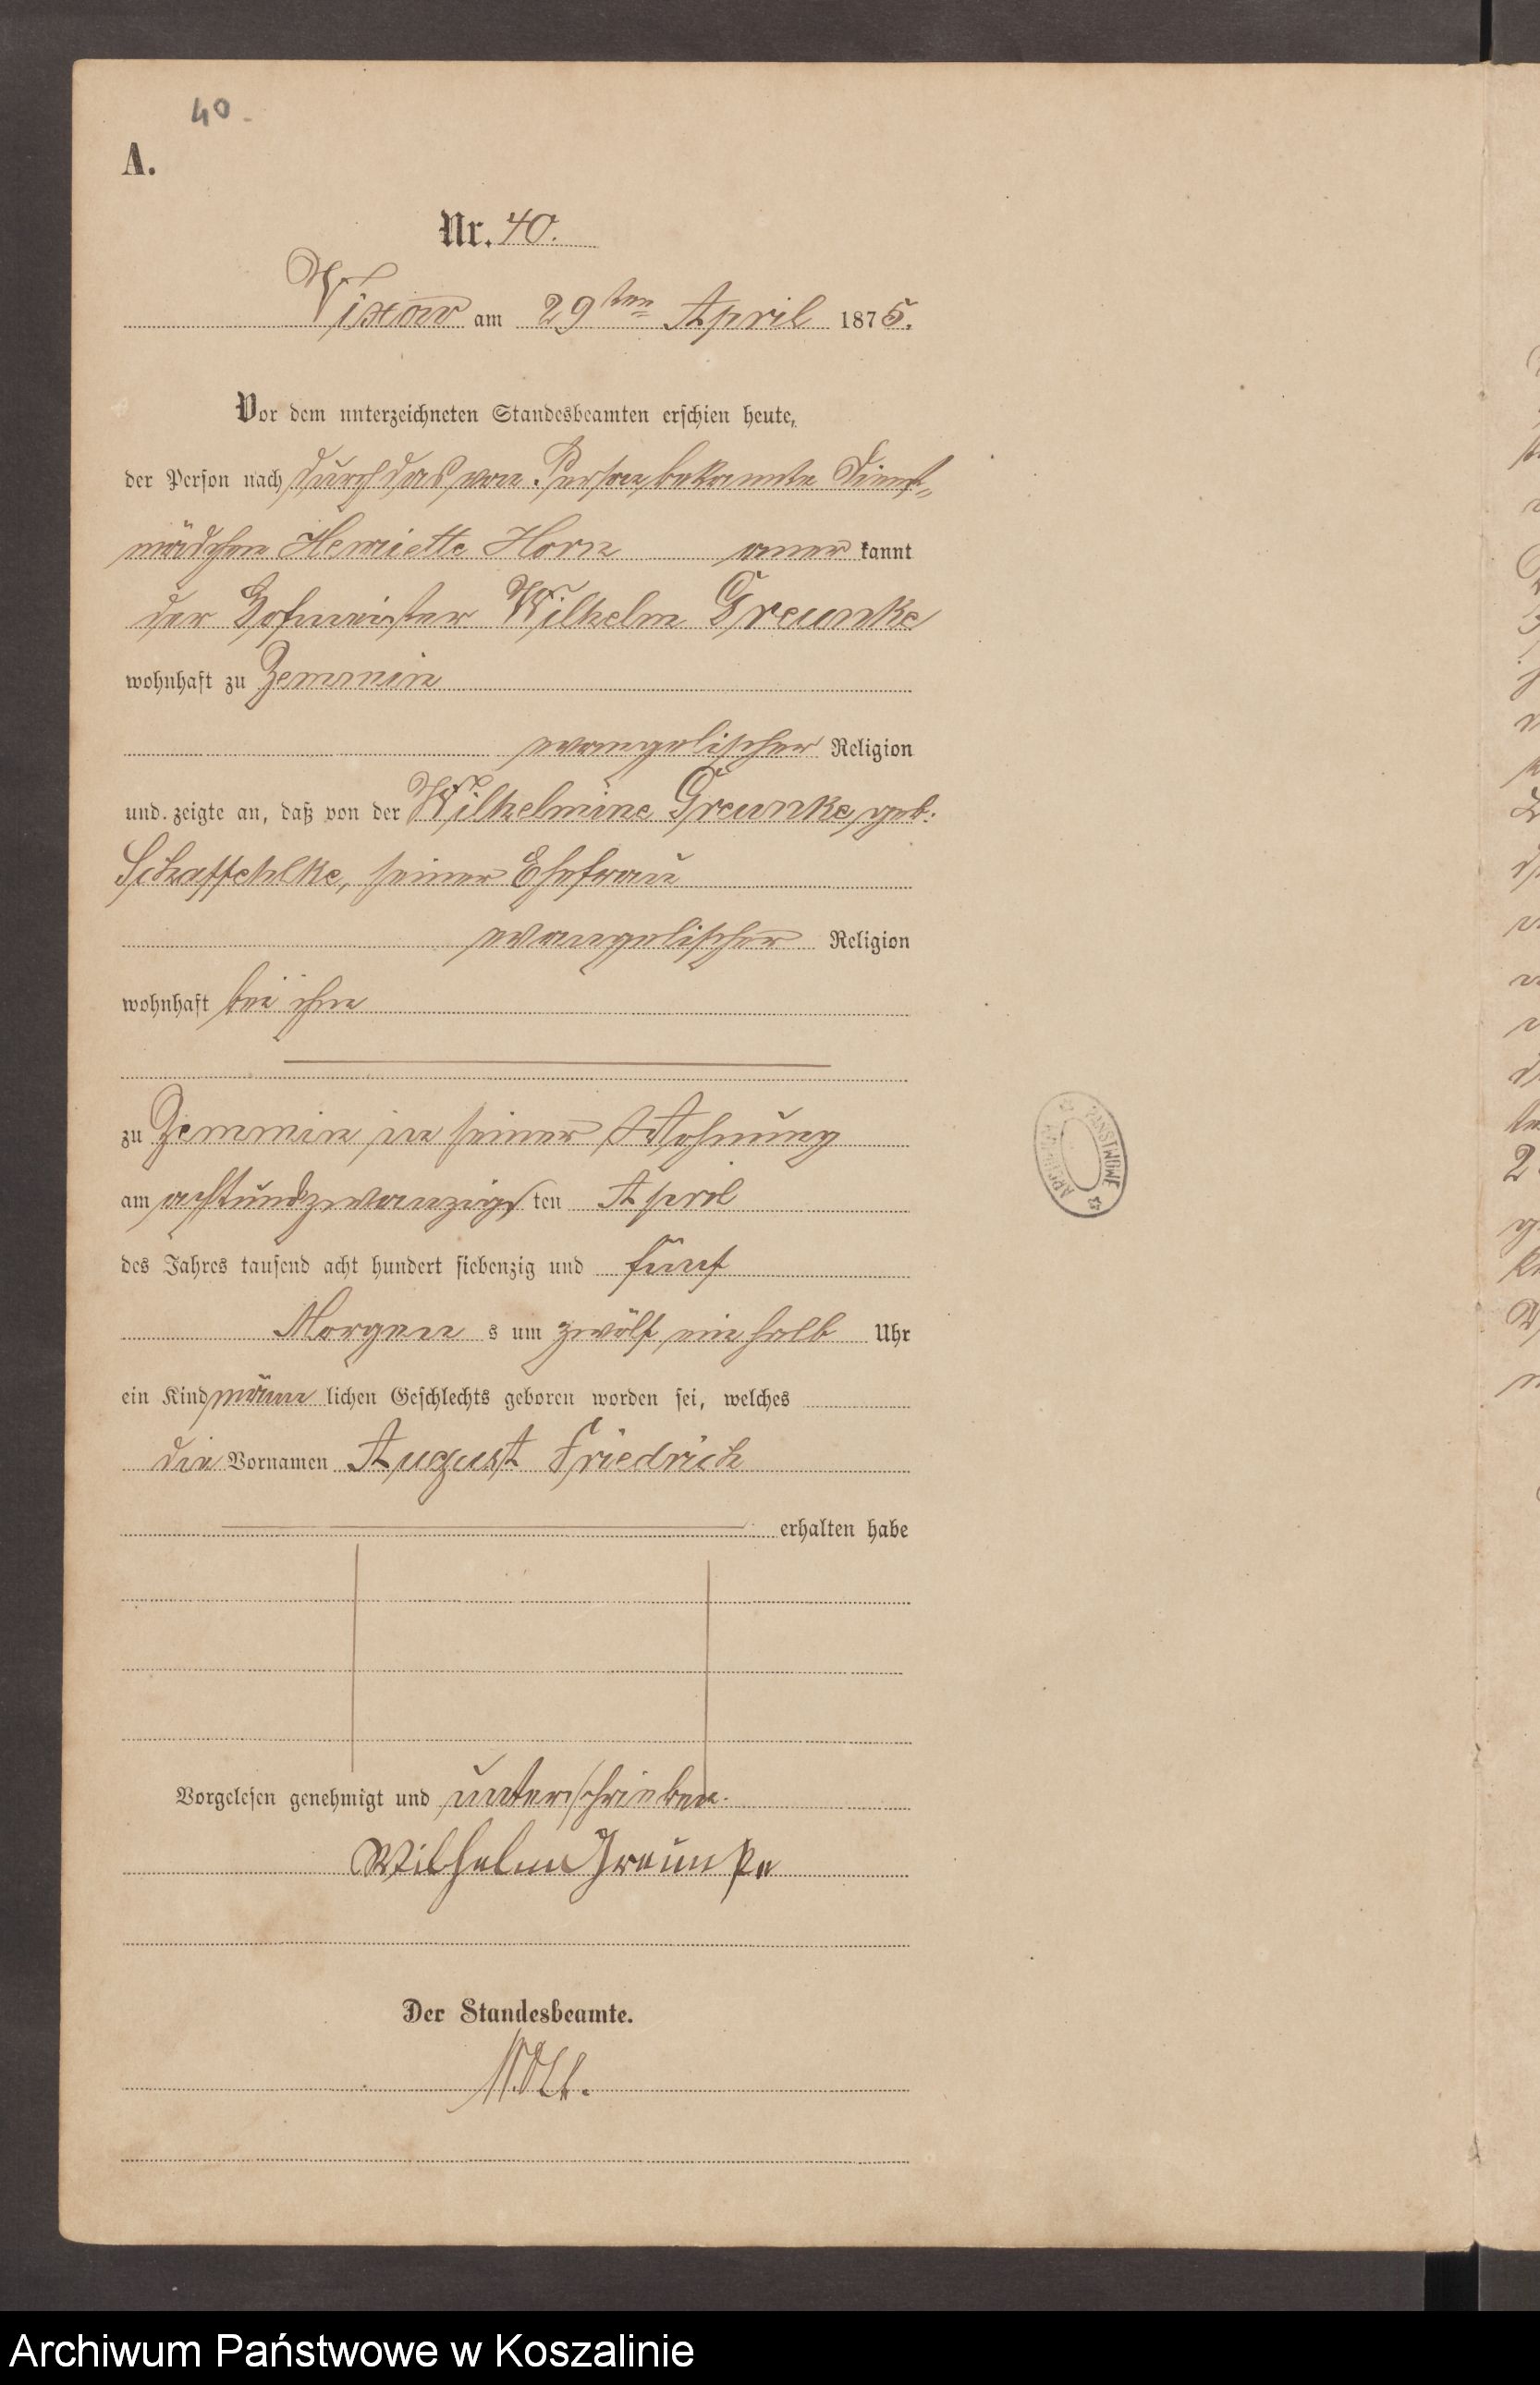 40.
A.
Nr. 40.
Vixow am 29ten April 1875.
Vor dem unterzeichneten Standesbeamten erschien heute,
der Person nach durch das von Person bekannte Dienst-
mädchen Henriette Horn aner kannt
der Hofmeister Wilhelm Greunke
wohnhaft zu Zemmin
evangelischer Religion
und zeigte an, daß von der Wilhelmine Greunke, geb.
seiner Ehefrau
evangelischer Religion
wohnhaft bei ihm
zu Zemmin in seiner Wohnung
am achtundzwanzigs ten April
des Jahres tausend acht hundert siebenzig und fünf
Morgen s um zwölf ein halb Uhr
ein Kind männ lichen Geschlechts geboren worden sei, welches
die Vornamen August Friedrich
erhalten habe
Vorgelesen genehmigt und unterschrieben.
Wilhelm Greunke
Der Standesbeamte.
ARCHIWUM PAŃSTWOWE
Archiwum Państwowe w Koszalinie